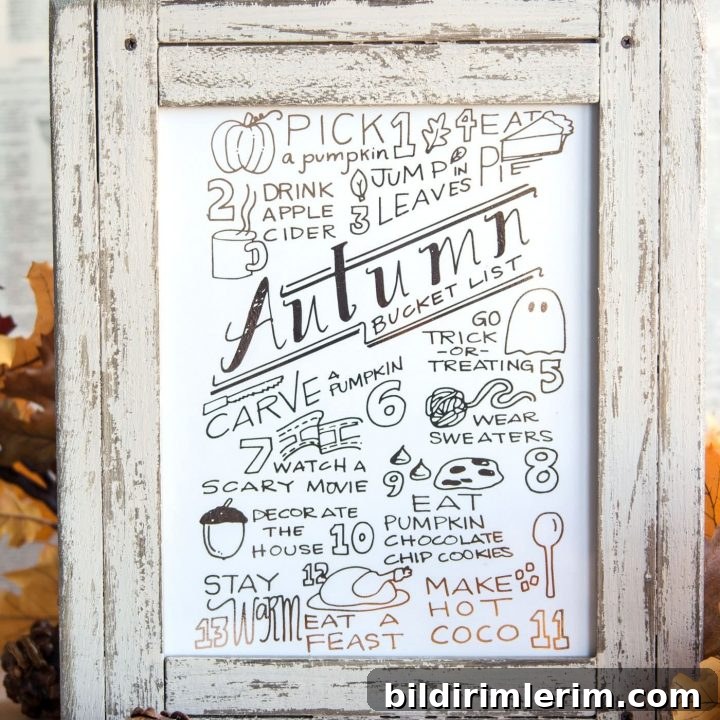 PICK 1
a pumpkin
4 EAT
PIE
2 DRINK
APPLE
CIDER
3 JUMP IN
LEAVES
Autumn
BUCKET LIST
GO
TRICK
-OR-
TREATING 5
CARVE A
PUMPKIN 6
7 WATCH A
SCARY MOVIE
WEAR
SWEATERS 8
9 EAT
PUMPKIN
CHOCOLATE
CHIP COOKIES
DECORATE
THE
HOUSE 10
MAKE
HOT
COCO 11
12 EAT A
FEAST
STAY
13 Warm
bildirimlerim.com